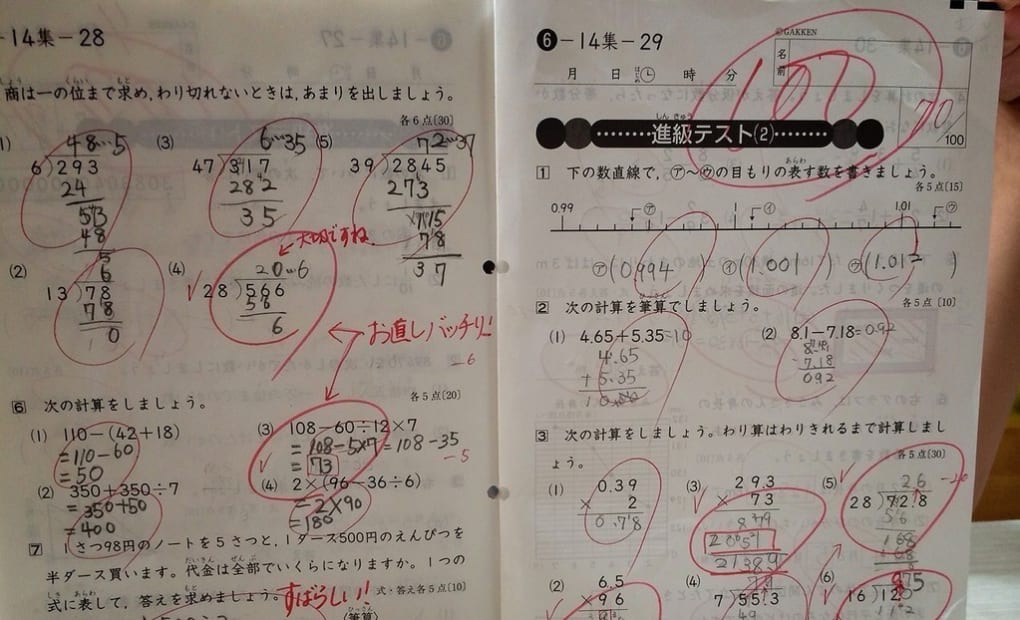 -14集-28
商は一の位まで求め,わり切れないときは,あまりを出しましょう。
各6点[30]
48…5
6)293
24
53
48
5
(3)
6…35
47)317
282
35
(5)
39)2845
273
78
37
(2)
6
13)78
78
0
(4)
大切ですね
20…6
28)566
56
6
お直しバッチリ!!
-6
6 次の計算をしましょう。
各5点[20]
(1) 110-(42+18)
=110-60
=50
(2) 350+350÷7
=350+50
=400
(3) 108-60÷12×7
=108-5×7=108-35
=73
-5
(4) 2×(96-36÷6)
=2×90
=180
7 1さつ98円のノートを5さつと,1ダース500円のえんぴつを
半ダース買います。代金は全部でいくらになりますか。1つの
式に表して,答えを求めましょう。
式・答え各5点[10]
すばらしい!!
(筆算)
6-14集-29
©GAKKEN
月 日 時 分
名前
100
進級テスト(2)
1 下の数直線で,㋐~㋒の目もりの表す数を書きましょう。
各5点[15]
0.99 ㋐ 1 ㋑ 1.01 ㋒
㋐(0.994) ㋑(1.001) ㋒(1.012)
2 次の計算を筆算でしましょう。
各5点[10]
(1) 4.65+5.35=10
4.65
+5.35
(2) 8.1-7.18=0.92
7.18
092
3 次の計算をしましょう。わり算はわりきれるまで計算しましょ
う。
各5点[30]
(1)
0.39
× 2
0.78
(3)
293
× 73
879
2051
21389
(5)
26
28)728
56
168
168
(2)
6.5
×96
(4)
7)55.3
49
(6)
16)12
112